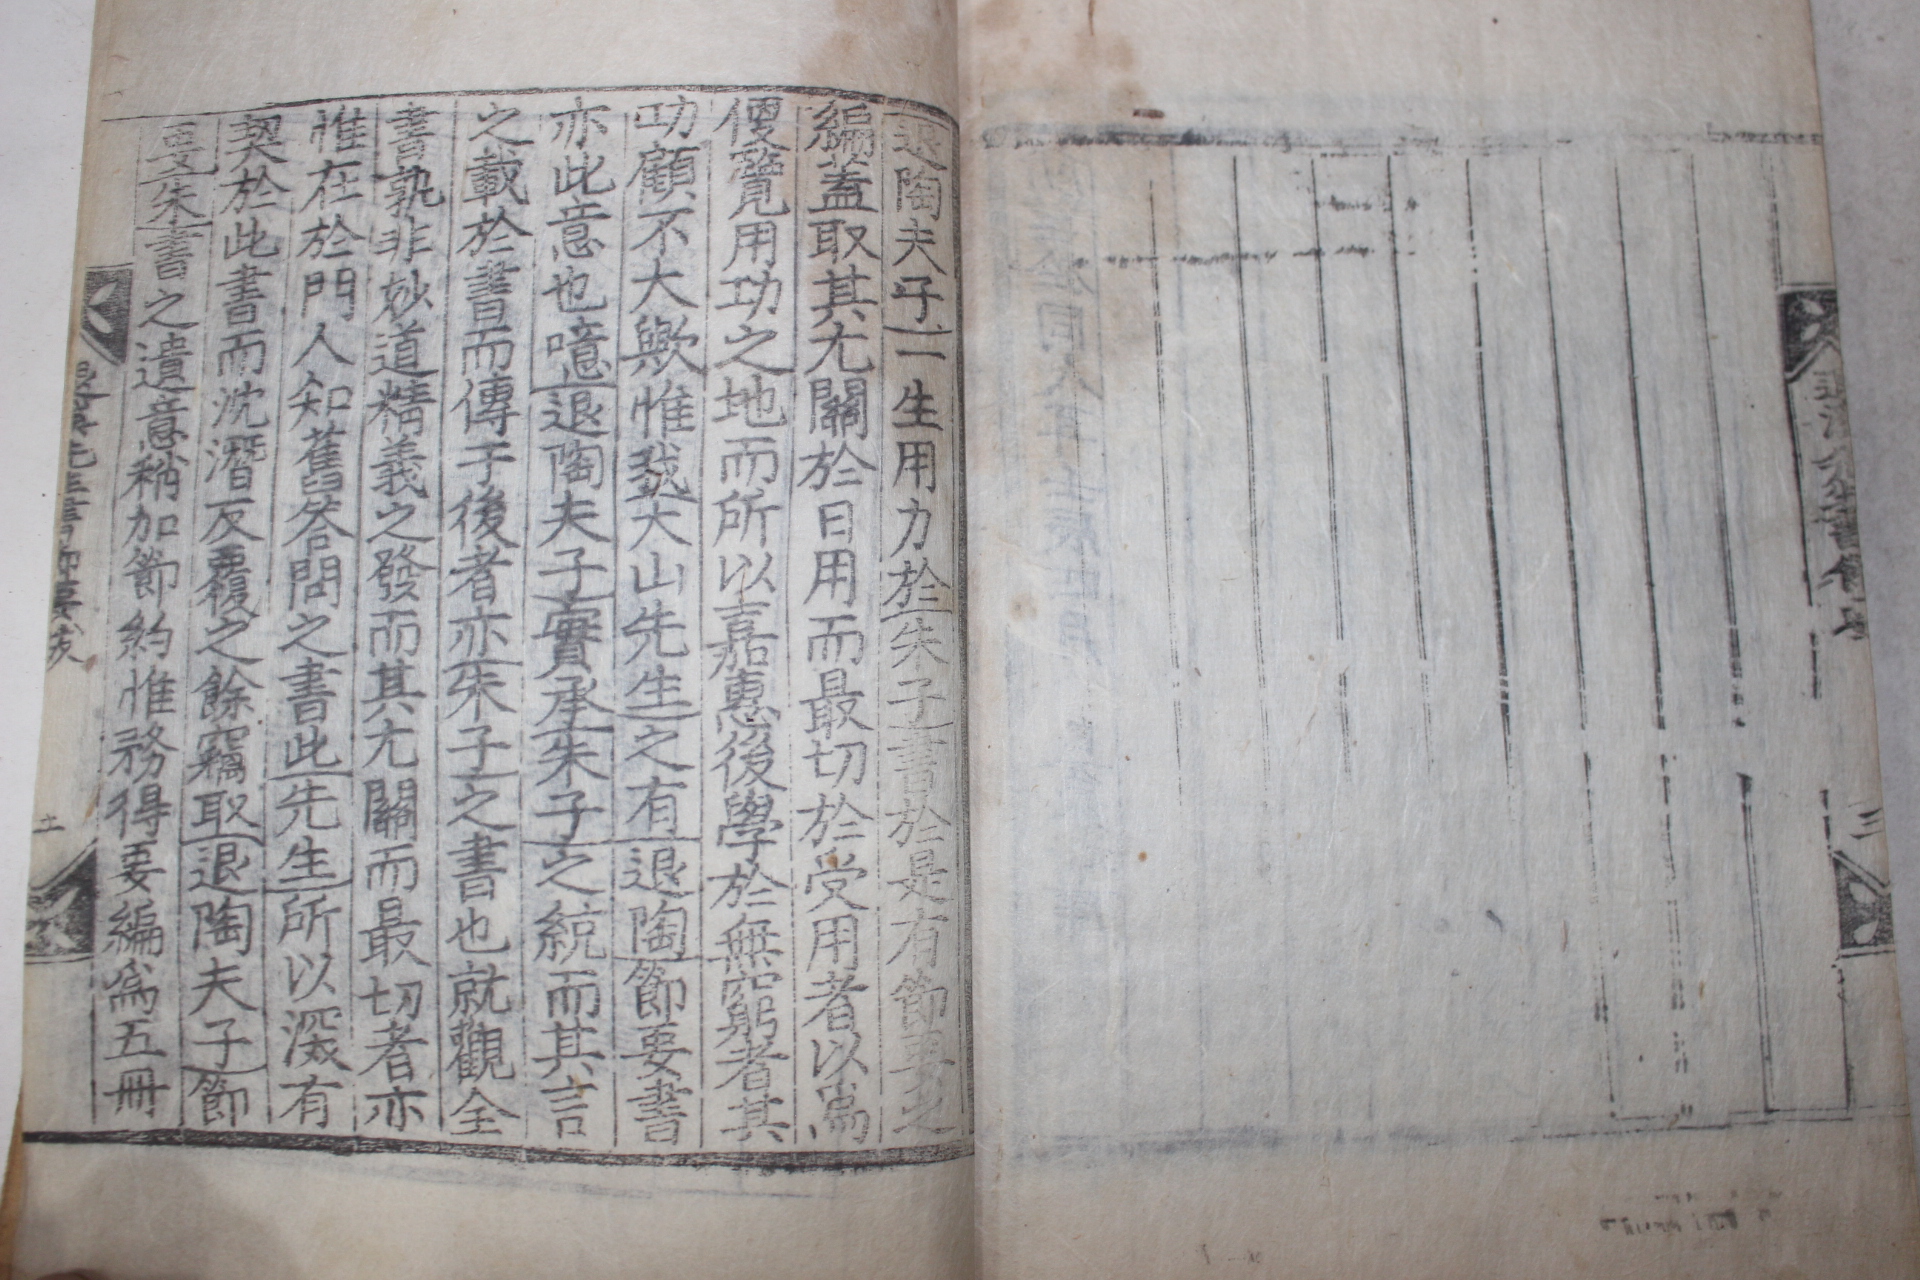 退陶夫子一生用力於朱子書於是有節要之
編蓋取其尤關於日用而最切於受用者以爲
便覽用功之地而所以嘉惠後學於無窮者其
功顧不大歟惟我大山先生之有退陶節要書
亦此意也噫退陶夫子實承朱子之統而其言
之載於書而傳于後者亦朱子之書也就觀全
書孰非妙道精義之發而其尤關而最切者亦
惟在於門人知舊答問之書此先生所以深有
契於此書而沈潛反覆之餘竊取退陶夫子節
要朱書之遺意稍加節約惟務得要編爲五冊